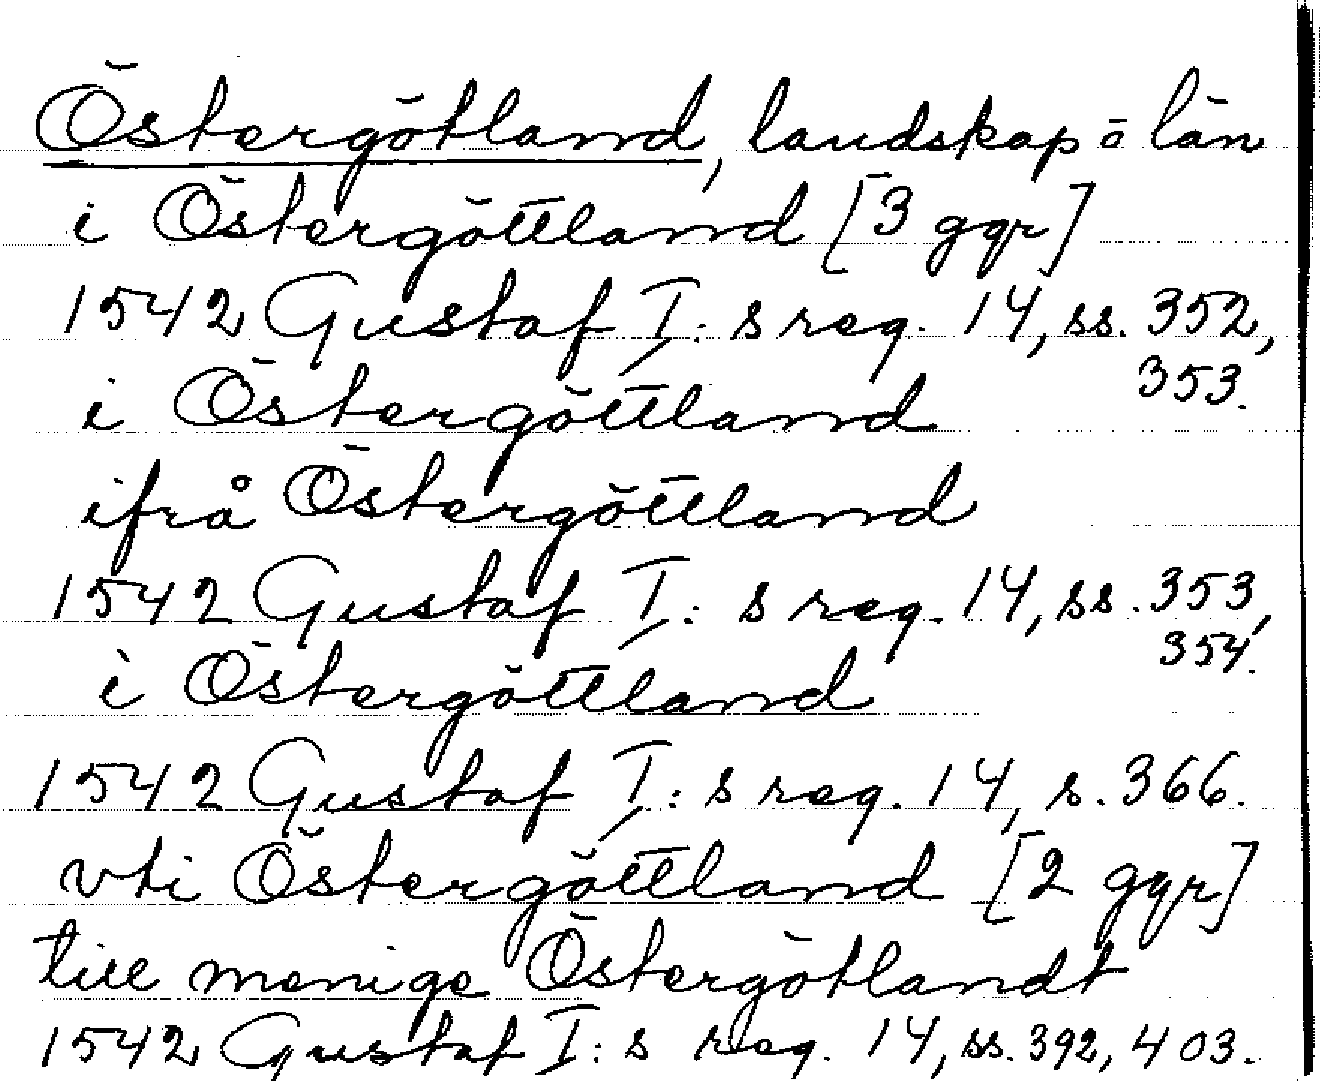 Östergötland, landskap o län
i Östergöttland [3 ggr]
1542 Gustaf I:s reg. 14, ss. 352,
353.
i Östergöttland
ifrå Östergöttland
1542 Gustaf I:s reg. 14, ss. 353,
354.
i Östergöttland
1542 Gustaf I:s reg. 14, s. 366.
vti Östergöttland [2 ggr]
till menige Östergötlandt
1542 Gustaf I:s reg. 14, ss. 392, 403.